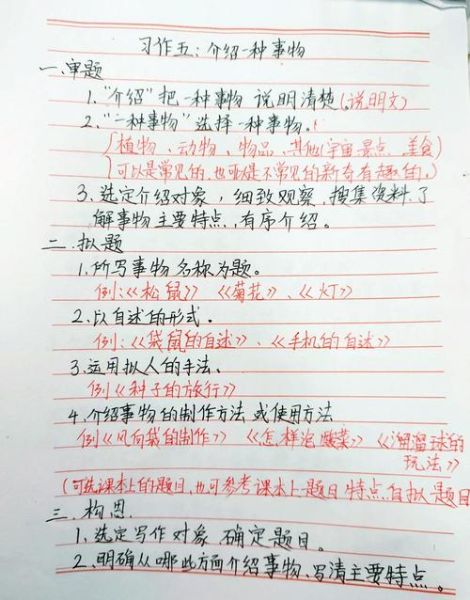 习作五：介绍一种事物
一、审题
1、“介绍”把一种事物说明清楚(说明文)
2、“一种事物”选择一种事物。
植物、动物、物品、其他(宇宙 景点、美食)
可以是常见的,也可以是不常见的新奇有趣的。
3、选定介绍对象,细致观察、搜集资料、了
解事物主要特点,有序介绍。
二、拟题
1、所写事物名称为题。
例:《松鼠》《菊花》、《灯》
2、以自述的形式。
例:《袋鼠的自述》、《手机的自述》
3、运用拟人的手法、
例《种子的旅行》
4、介绍事物的制作方法或使用方法
例《风向袋的制作》《怎样泡酸菜》《溜溜球的
玩法》
(可选课本上的题目,也可参考课本上题目特点,自拟题目
三、构思
1、选定写作对象 确定题目。
2、明确从哪些方面介绍事物、写清主要特点。